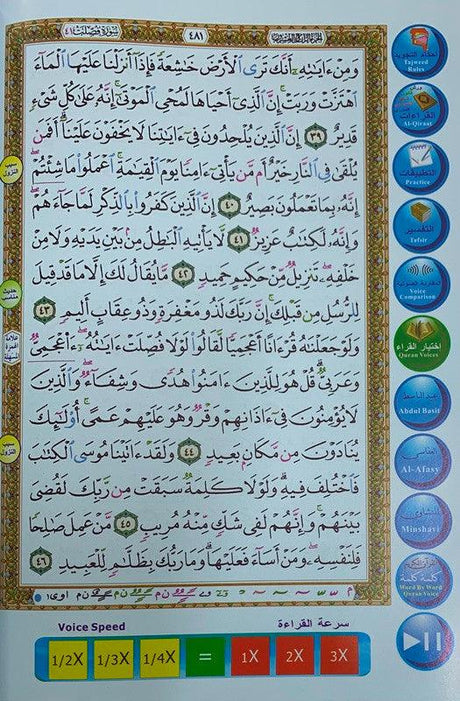 سورة فصلت ٤١
٤٨١
وَمِنْ ءَايَـٰتِهِۦٓ أَنَّكَ تَرَى ٱلْأَرْضَ خَـٰشِعَةً فَإِذَآ أَنزَلْنَا عَلَيْهَا ٱلْمَآءَ
ٱهْتَزَّتْ وَرَبَتْ ۚ إِنَّ ٱلَّذِىٓ أَحْيَاهَا لَمُحْىِ ٱلْمَوْتَىٰٓ ۚ إِنَّهُۥ عَلَىٰ كُلِّ شَىْءٍ
قَدِيرٌ ٣٩ إِنَّ ٱلَّذِينَ يُلْحِدُونَ فِىٓ ءَايَـٰتِنَا لَا يَخْفَوْنَ عَلَيْنَآ ۗ أَفَمَن
يُلْقَىٰ فِى ٱلنَّارِ خَيْرٌ أَم مَّن يَأْتِىٓ ءَامِنًا يَوْمَ ٱلْقِيَـٰمَةِ ۚ ٱعْمَلُوا۟ مَا شِئْتُمْ ۖ
إِنَّهُۥ بِمَا تَعْمَلُونَ بَصِيرٌ ٤٠ إِنَّ ٱلَّذِينَ كَفَرُوا۟ بِٱلذِّكْرِ لَمَّا جَآءَهُمْ ۖ
وَإِنَّهُۥ لَكِتَـٰبٌ عَزِيزٌ ٤١ لَّا يَأْتِيهِ ٱلْبَـٰطِلُ مِنۢ بَيْنِ يَدَيْهِ وَلَا مِنْ
خَلْفِهِۦ ۖ تَنزِيلٌ مِّنْ حَكِيمٍ حَمِيدٍ ٤٢ مَّا يُقَالُ لَكَ إِلَّا مَا قَدْ قِيلَ
لِلرُّسُلِ مِن قَبْلِكَ ۚ إِنَّ رَبَّكَ لَذُو مَغْفِرَةٍ وَذُو عِقَابٍ أَلِيمٍ ٤٣
وَلَوْ جَعَلْنَـٰهُ قُرْءَانًا أَعْجَمِيًّا لَّقَالُوا۟ لَوْلَا فُصِّلَتْ ءَايَـٰتُهُۥٓ ۖ ءَا۬عْجَمِىٌّ
وَعَرَبِىٌّ ۗ قُلْ هُوَ لِلَّذِينَ ءَامَنُوا۟ هُدًى وَشِفَآءٌ ۖ وَٱلَّذِينَ
لَا يُؤْمِنُونَ فِىٓ ءَاذَانِهِمْ وَقْرٌ وَهُوَ عَلَيْهِمْ عَمًى ۚ أُو۟لَـٰٓئِكَ
يُنَادَوْنَ مِن مَّكَانٍۭ بَعِيدٍ ٤٤ وَلَقَدْ ءَاتَيْنَا مُوسَى ٱلْكِتَـٰبَ
فَٱخْتُلِفَ فِيهِ ۗ وَلَوْلَا كَلِمَةٌ سَبَقَتْ مِن رَّبِّكَ لَقُضِىَ
بَيْنَهُمْ ۚ وَإِنَّهُمْ لَفِى شَكٍّ مِّنْهُ مُرِيبٍ ٤٥ مَّنْ عَمِلَ صَـٰلِحًا
فَلِنَفْسِهِۦ ۖ وَمَنْ أَسَآءَ فَعَلَيْهَا ۗ وَمَا رَبُّكَ بِظَلَّـٰمٍ لِّلْعَبِيدِ ٤٦
أحكام التجويد
Tajweed
Rules
القراءات
Al-Qiraat
التطبيقات
Practice
التفسير
Tefsir
المقارنة الصوتية
Voice
Comparison
إختيار القراء
Quran Voices
عبد الباسط
Abdul Basit
العفاسي
Al-Afasy
المنشاوي
Minshavi
كلمة كلمة
Word By Word
Quran Voice
Voice Speed
سرعة القراءة
1/2X 1/3X 1/4X = 1X 2X 3X